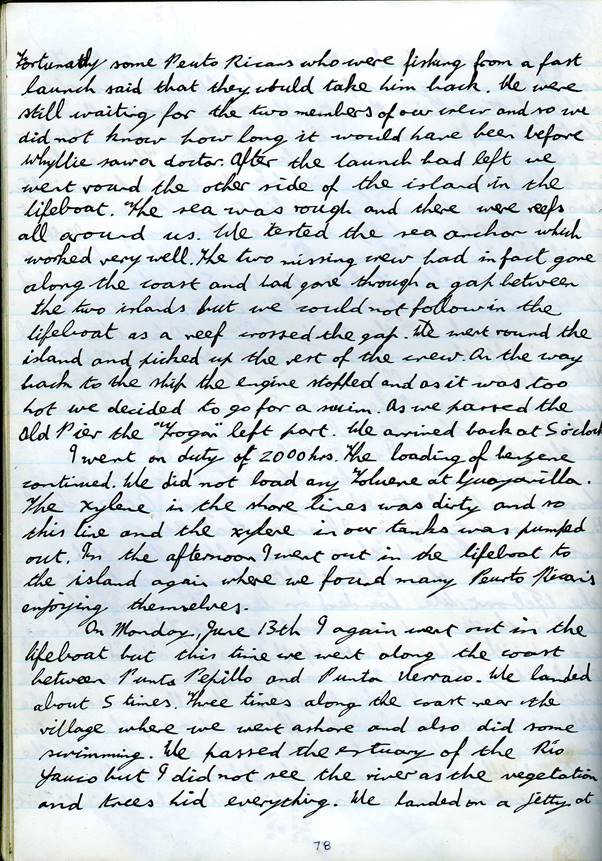 Fortunatly some Peuto Ricans who were fishing from a fast
launch said that they would take him back. We were
still waiting for the two members of our crew and so we
did not know how long it would have been before
Whyllie saw a doctor. After the launch had left we
went round the other side of the island in the
lifeboat. The sea was rough and there were reefs
all around us. We tested the sea anchor which
worked very well. The two missing crew had in fact gone
along the coast and had gone through a gap between
the two islands but we could not follow in the
lifeboat as a reef crossed the gap. We went round the
island and picked up the rest of the crew. On the way
back to the ship the engine stopped and as it was too
hot we decided to go for a swim. As we passed the
Old Pier the "Frogan" left port. We arrived back at 5 o'clock
I went on duty of 2000hrs. The loading of benzene
continued. We did not load any Toluene at Guayanilla.
The xylene in the shore lines was dirty and so
this line and the xylene in our tanks was pumped
out. In the afternoon I went out in the lifeboat to
the island again where we found many Peurto Ricans
enjoying themselves.
On Monday, June 13th I again went out in the
lifeboat but this time we went along the coast
between Punta Pepillo and Punta Verraco. We landed
about 5 times. Three times along the coast near the
village where we went ashore and also did some
swimming. We passed the estuary of the Rio
Yauco but I did not see the river as the vegetation
and trees hid everything. We landed on a jetty at
78